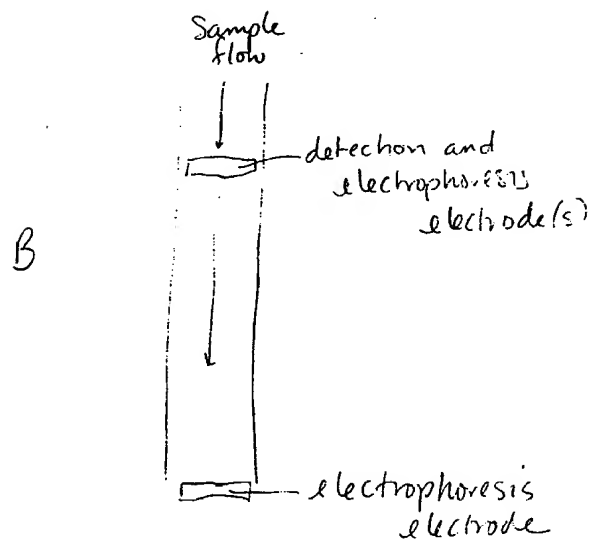 Sample
flow
detection and
electrophoresis
electrode(s)
B
electrophoresis
electrode